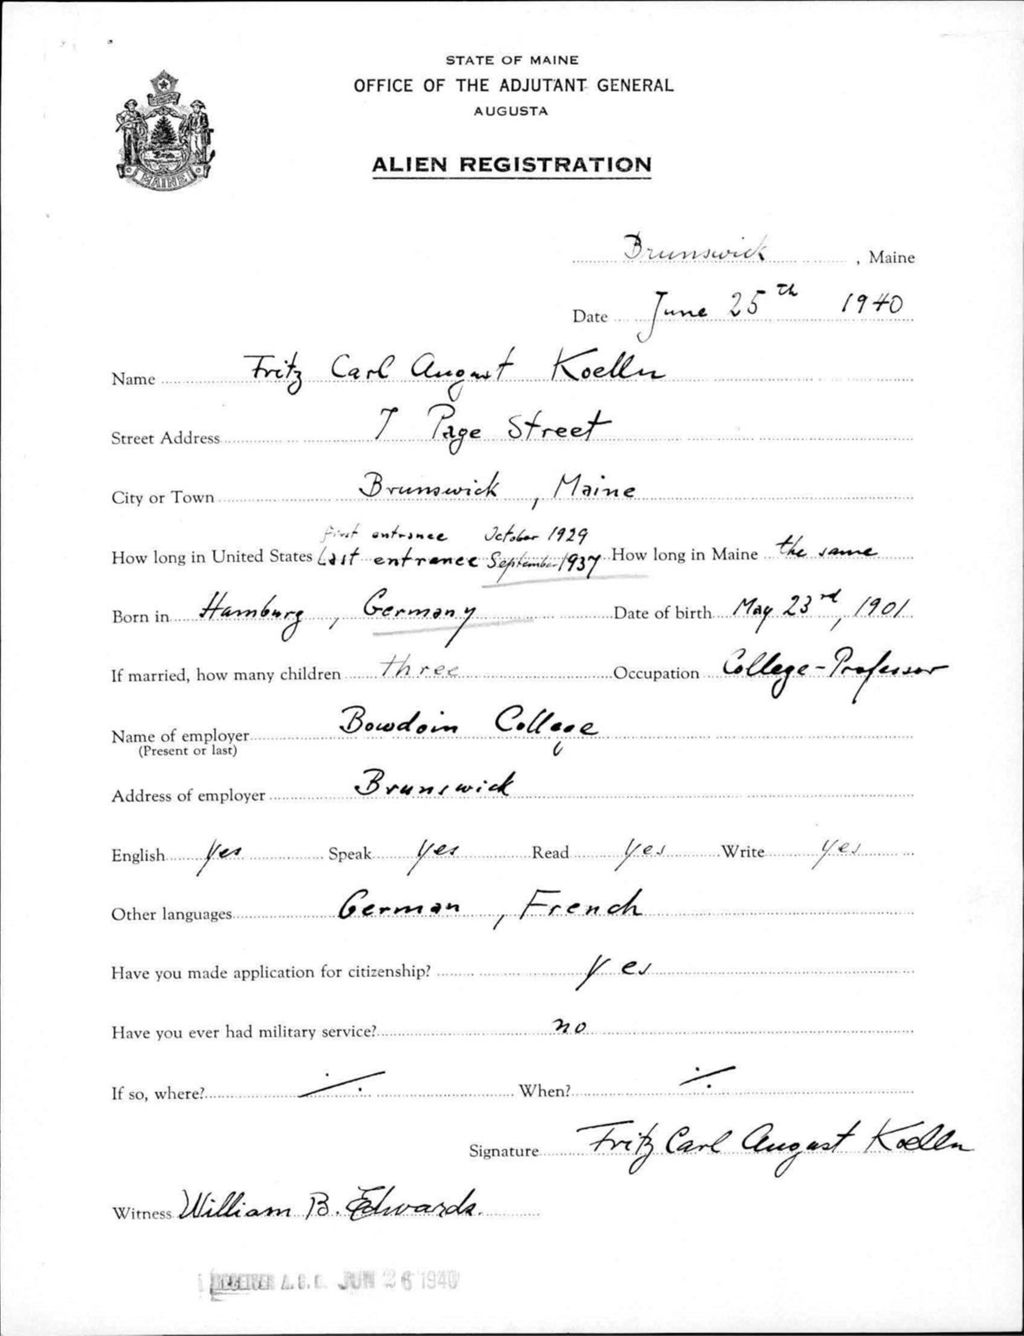 STATE OF MAINE
OFFICE OF THE ADJUTANT GENERAL
AUGUSTA
ALIEN REGISTRATION
MAINE
Brunswick, Maine
Date June 25th 1940
Name Fritz Carl August Koelln
Street Address 7 Page Street
City or Town Brunswick, Maine
first entrance October 1929
How long in United States Last entrance September 1937 How long in Maine the same
Born in Hamburg, Germany Date of birth May 23rd, 1901
If married, how many children three Occupation College-Professor
Name of employer Bowdoin College
(Present or last)
Address of employer Brunswick
English yes Speak yes Read yes Write yes
Other languages German, French
Have you made application for citizenship? yes
Have you ever had military service? no
If so, where? ./. When? ./.
Signature Fritz Carl August Koelln
Witness William B. Edwards.
RECEIVED A.G.O. JUN 26 1940